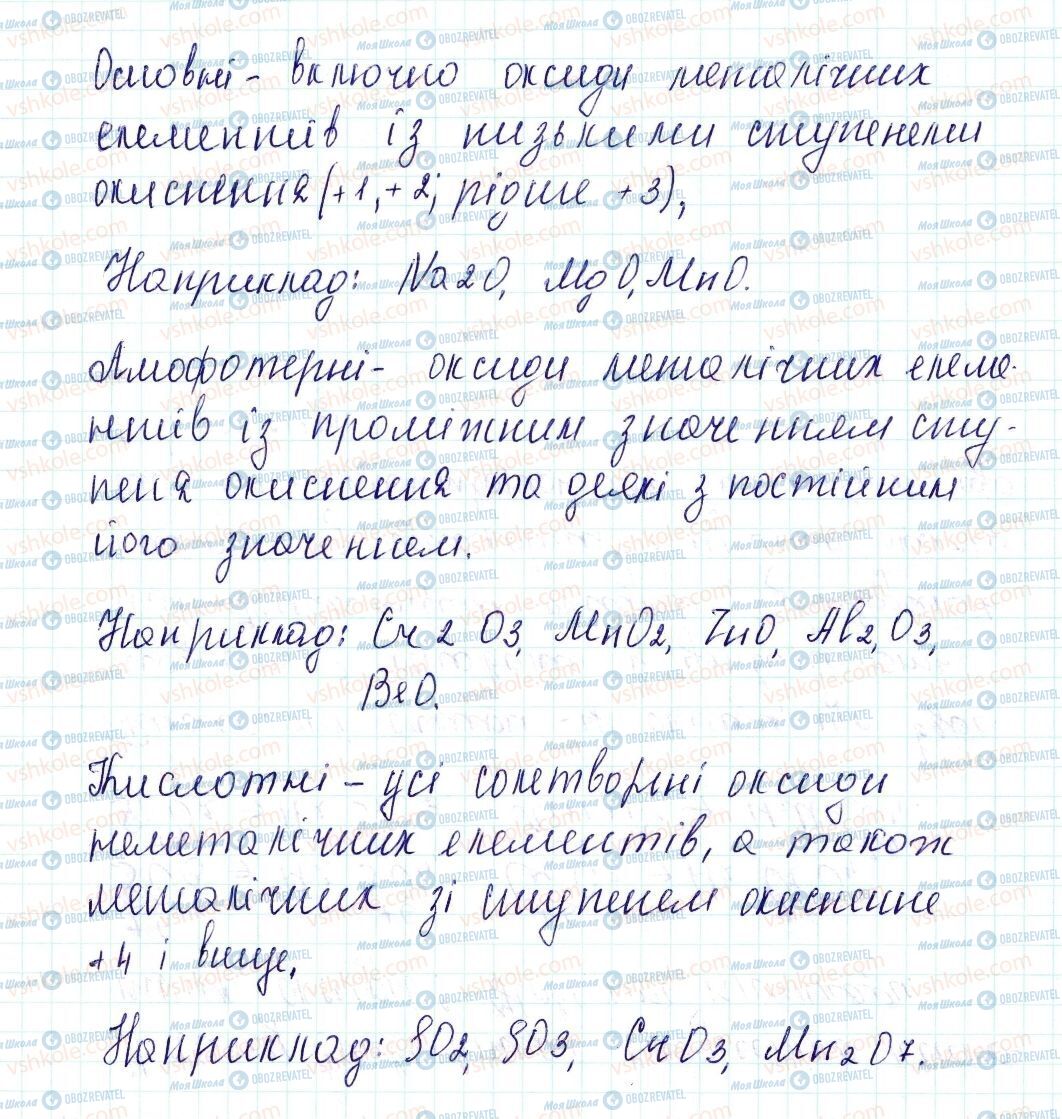 Основні - включно оксиди металічних
елементів із низькими ступенями
окиснення (+1, +2; рідше +3),
Наприклад: Na2O, MgO, MnO.
Амофотерні - оксиди металічних елеме-
нтів із проміжним значенням сту-
пеня окиснення та деякі з постійним
його значенням.
Наприклад: Cr2O3, MnO2, ZnO, Al2,O3,
BeO.
Кислотні - усі солетворні оксиди
неметалічних елементів, а також
металічних зі ступенем окиснення
+4 і вище.
Наприклад: SO2, SO3, CrO3, Mn2O7.